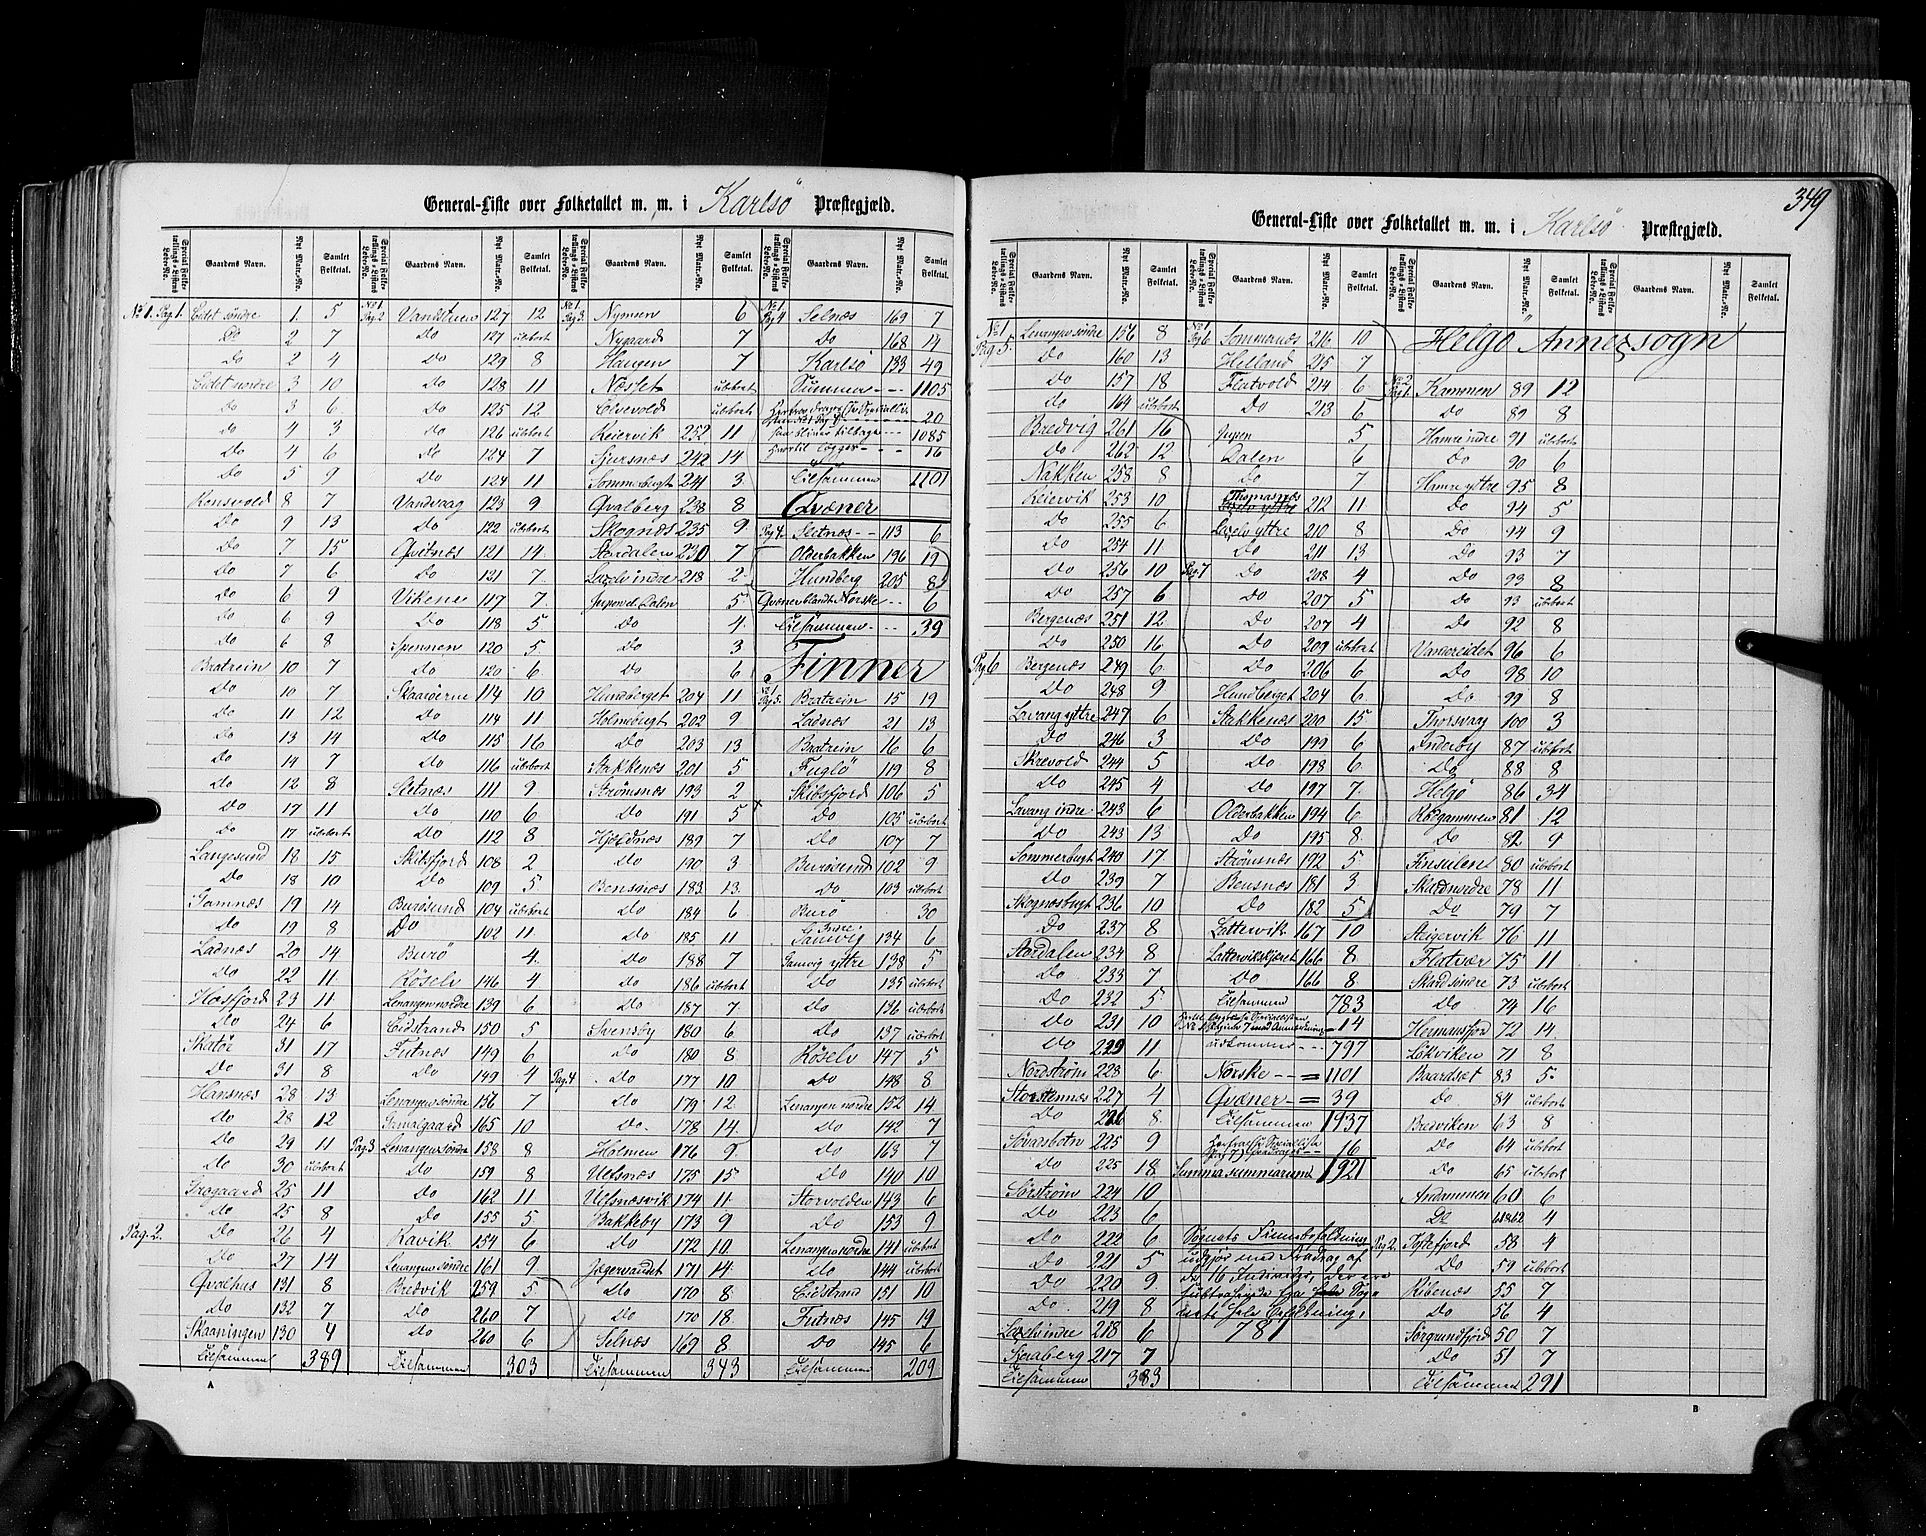 General-Liste over Folketallet m. m. i Karlsö Præstegjæld.
Special Folketællings-Listens Løbe-No. Gaardens Navn. Nyt Matr.-No. Samlet Folketal.
No 1. Pag 1. Eidet søndre 1 5
Do 2 7
Do 2 4
Eidet nordre 3 10
Do 3 6
Do 4 3
Do 4 6
Do 5 9
Ronsvold 8 7
Do 9 13
Do 7 15
Do 7 6
Do 6 9
Do 6 9
Do 6 8
Bratrein 10 7
Do 10 7
Do 11 12
Do 13 14
Do 14 7
Do 12 8
Do 17 11
Do 17 ubebort
Langesund 18 15
Do 18 10
Gamnæs 19 14
Do 19 8
Ladnæs 20 14
Do 22 11
Hessfjord 23 11
Do 24 6
Skatøe 31 17
Do 31 8
Hansnæs 28 13
Do 28 12
Do 29 11
Do 30 ubebort
Grøgaard 25 11
Do 25 8
Pag. 2. Do 26 4
Do 27 14
Qvalhus 131 8
Do 132 7
Skaaningen 130 4
Tilsammen 389
No 1. Pag 2 Vandstuen 127 12
Do 127 ubebort
Do 129 8
Do 128 11
Do 125 12
Do 126 ubebort
Do 124 7
Do 124 11
Vandvaag 123 9
Do 122 ubebort
Qvitnæs 121 14
Do 121 7
Vikene 117 7
Do 118 5
Spennen 120 5
Do 120 6
Skaarøerne 114 10
Do 114 11
Do 115 16
Do 116 ubebort
Sletnæs 111 9
Do 110 6
Do 112 8
Skibsfjord 108 2
Do 109 5
Burøsund 104 ubebort
Do 102 11
Burö 4
Röselv 146 4
Lenangen nordre 139 6
Eidstrand 150 5
Futnæs 149 6
Do 149 4
Lenangen søndre 156 7
Gamalgaard 165 10
Pag 3 Lenangen søndre 158 8
Do 159 8
Do 162 11
Do 155 5
Ravik 154 6
Lenangen søndre 161 9
Bredvik 259 5
Do 260 7
Do 260 6
Tilsammen 303
No 1. Pag 3. Nymoen 6
Nygaard 7
Haugen 7
Næsset ubebort
Elvevold ubebort
Reiervik 252 11
Sjursnæs 242 14
Sommerbugt 241 3
Qvalberg 238 8
Skognæs 235 9
Stordalen 230 7
Laxelv indre 218 2
Jupovel Dalen 5
Do 4
Do 3
Do 6
Hundberget 204 11
Holmebugt 202 9
Do 203 13
Stakkenæs 201 5
Strømsnæs 193 2
Do 191 5
Hjeldnæs 189 7
Do 190 3
Bensnæs 183 13
Do 184 6
Do 185 11
Do 188 7
Do 186 ubebort
Do 187 7
Svensby 180 6
Do 180 8
Pag. 4 Do 177 10
Do 179 12
Do 178 14
Holmen 176 9
Ulfsnæs 175 15
Ulfsnæsvik 174 11
Bakkeby 173 9
Do 172 10
Jægervandet 171 14
Do 170 8
Do 170 18
Selnæs 169 8
Tilsammen 343
No 1. Pag 4 Selnæs 169 7
Do 168 14
Karlsö 133 49
Summa 1105
20
saa bliver tilbage 1085
hvortil lægges 16
Tilsammen 1101
Qvæner
Pag 4. Sletnæs 113 6
Olderbakken 196 19
Hundberg 205 8
Qvæner blandt Norske 6
Tilsammen 39
Finner
No 1. Pag 5. Bratrein 15 19
Ladnæs 21 13
Bratrein 16 6
Fuglö 119 8
Skibsfjord 106 5
Do 105 ubebort
Do 107 7
Burøsund 102 9
Do 103 ubebort
Burö 30
Gamvig Indre 134 6
Gamvig yttre 138 5
Do 135 ubebort
Do 136 ubebort
Do 137 ubebort
Röselv 147 5
Do 148 8
Lenangen nordre 152 14
Do 142 7
Do 163 7
Do 140 10
Storvolden 143 6
Do 153 9
Lenangen nordre 141 ubebort
Do 144 ubebort
Eidstrand 151 10
Futnæs 145 19
Do 145 6
Tilsammen 209
A
349
General-Liste over Folketallet m. m. i Karlsö Præstegjæld.
Special Folketællings-Listens Løbe-No. Gaardens Navn. Nyt Matr.-No. Samlet Folketal.
No 1 Pag 5. Lenangen søndre 156 8
Do 160 13
Do 157 18
Do 164 ubebort
Bredvig 261 16
Do 262 12
Nakken 258 8
Reiervik 253 10
Do 255 6
Do 254 11
Do 256 10
Do 257 6
Bergenæs 251 12
Do 250 16
Pag 6 Bergenæs 249 6
Do 248 9
Lavang yttre 247 6
Do 246 3
Skrevold 244 5
Do 245 4
Lavang indre 243 6
Do 243 13
Sommerbugt 240 17
Do 239 7
Skognæsbugt 236 10
Do 237 8
Stordalen 234 8
Do 233 7
Do 232 5
Do 231 10
Do 229 11
Nordstrøm 228 6
Storstennæs 227 4
Do 226 8
Sövarsbotn 225 9
Do 225 18
Sørstrøm 224 10
Do 223 6
Do 222 6
Do 221 5
Do 220 9
Do 219 8
Laxelv indre 218 6
Sjeraberg 217 7
Tilsammen 383
No 1 Pag 6 Sommernæs 216 10
Helland 215 7
Flatvold 214 6
Do 213 6
Jupen 5
Dalen 6
Do 7
Thomasnæs 212 11
Laxelv yttre 210 8
Do 211 13
Pag. 7 Do 208 4
Do 207 5
Do 207 4
Do 209 ubebort
Do 206 6
Hundberget 204 6
Stakkenæs 200 15
Do 199 6
Do 198 6
Do 197 7
Olderbakken 194 6
Do 195 8
Strømsnæs 192 5
Bensnæs 181 3
Do 182 5
Lattervik 167 10
Lattervikskjæret 166 8
Do 166 8
Tilsammen 783
14
udkommer 797
Norske = 1101
Qvæner = 39
Tilsammen 1937
16
Summa summarum 1921
Sognets Finnebefolkning
udgjør med Fradrag af
de 16 Individer, der ere
781
Helgö Annexsogn
No 2 Pag 1. Kammen 89 12
Do 89 8
Hamre indre 91 ubebort
Do 90 6
Hamre yttre 95 8
Do 94 5
Do 94 9
Do 93 7
Do 93 8
Do 93 ubebort
Do 92 8
Vandereidet 96 6
Do 98 10
Do 99 8
Thorsvaag 100 3
Inderöy 87 ubebort
Do 88 8
Helgö 86 34
Röegammen 81 12
Do 82 9
Finsülen 80 ubebort
Skard nordre 78 11
Do 79 7
Steigervik 76 11
Flatvær 75 11
Skard søndre 73 ubebort
Do 74 16
Hermansfjor 72 14
Lökviken 71 8
Baardset 83 5
Do 84 ubebort
Bredviken 63 8
Do 64 ubebort
Do 65 ubebort
Andammen 60 6
Do 61&62 4
Pag 2. Toftefjord 58 4
Do 59 ubebort
Ribenæs 55 7
Do 56 4
Sørgrundfjord 50 7
Do 51 7
Tilsammen 291
B